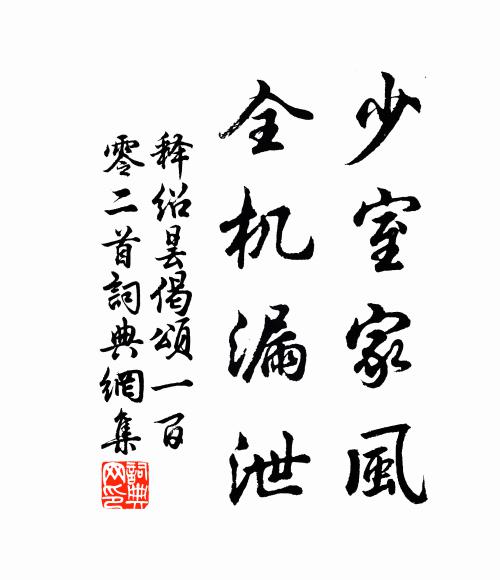 少室家風
全机漏泄
释绍昙偈頌一百
零二首詞典網集
詞典网印